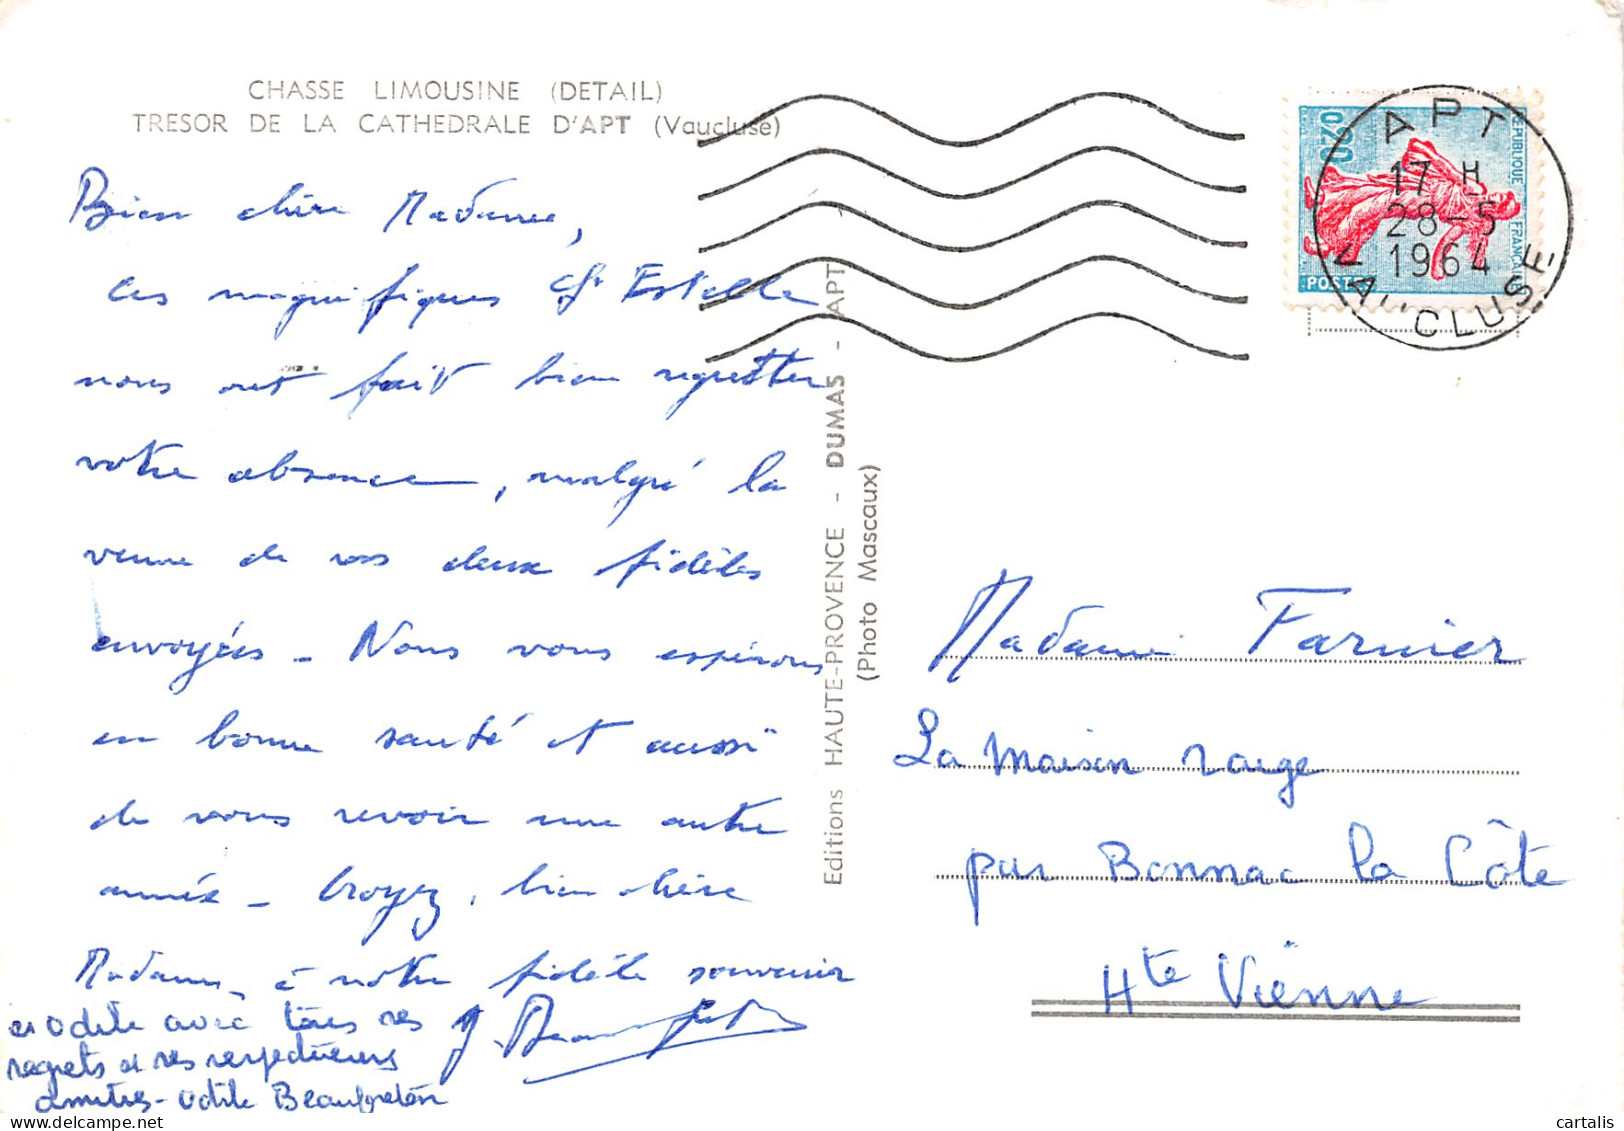 CHASSE LIMOUSINE (DETAIL)
TRESOR DE LA CATHEDRALE D'APT (Vaucluse)
Bien chère Madame,
Ces magnifiques Ste Estelle
nous ont fait bien regretter
votre absence, malgré la
venue de vos deux fidèles
envoyées - Nous vous espérons
en bonne santé et aussi
de vous revoir une autre
année - Croyez, bien chère
Madame, à notre fidèle souvenir
et Odile avec tous ses
regrets et ses respectueuses
amitiés - Odile Beaufreton
Editions HAUTE-PROVENCE - DUMAS - APT
(Photo Mascaux)
REPUBLIQUE FRANÇAISE
0,20
POSTES
APT
17 H
28-5
1964
VAUCLUSE
Madame Farnier
La Maison rouge
par Bonnac la Côte
Hte Vienne
cartalis
www.delcampe.net